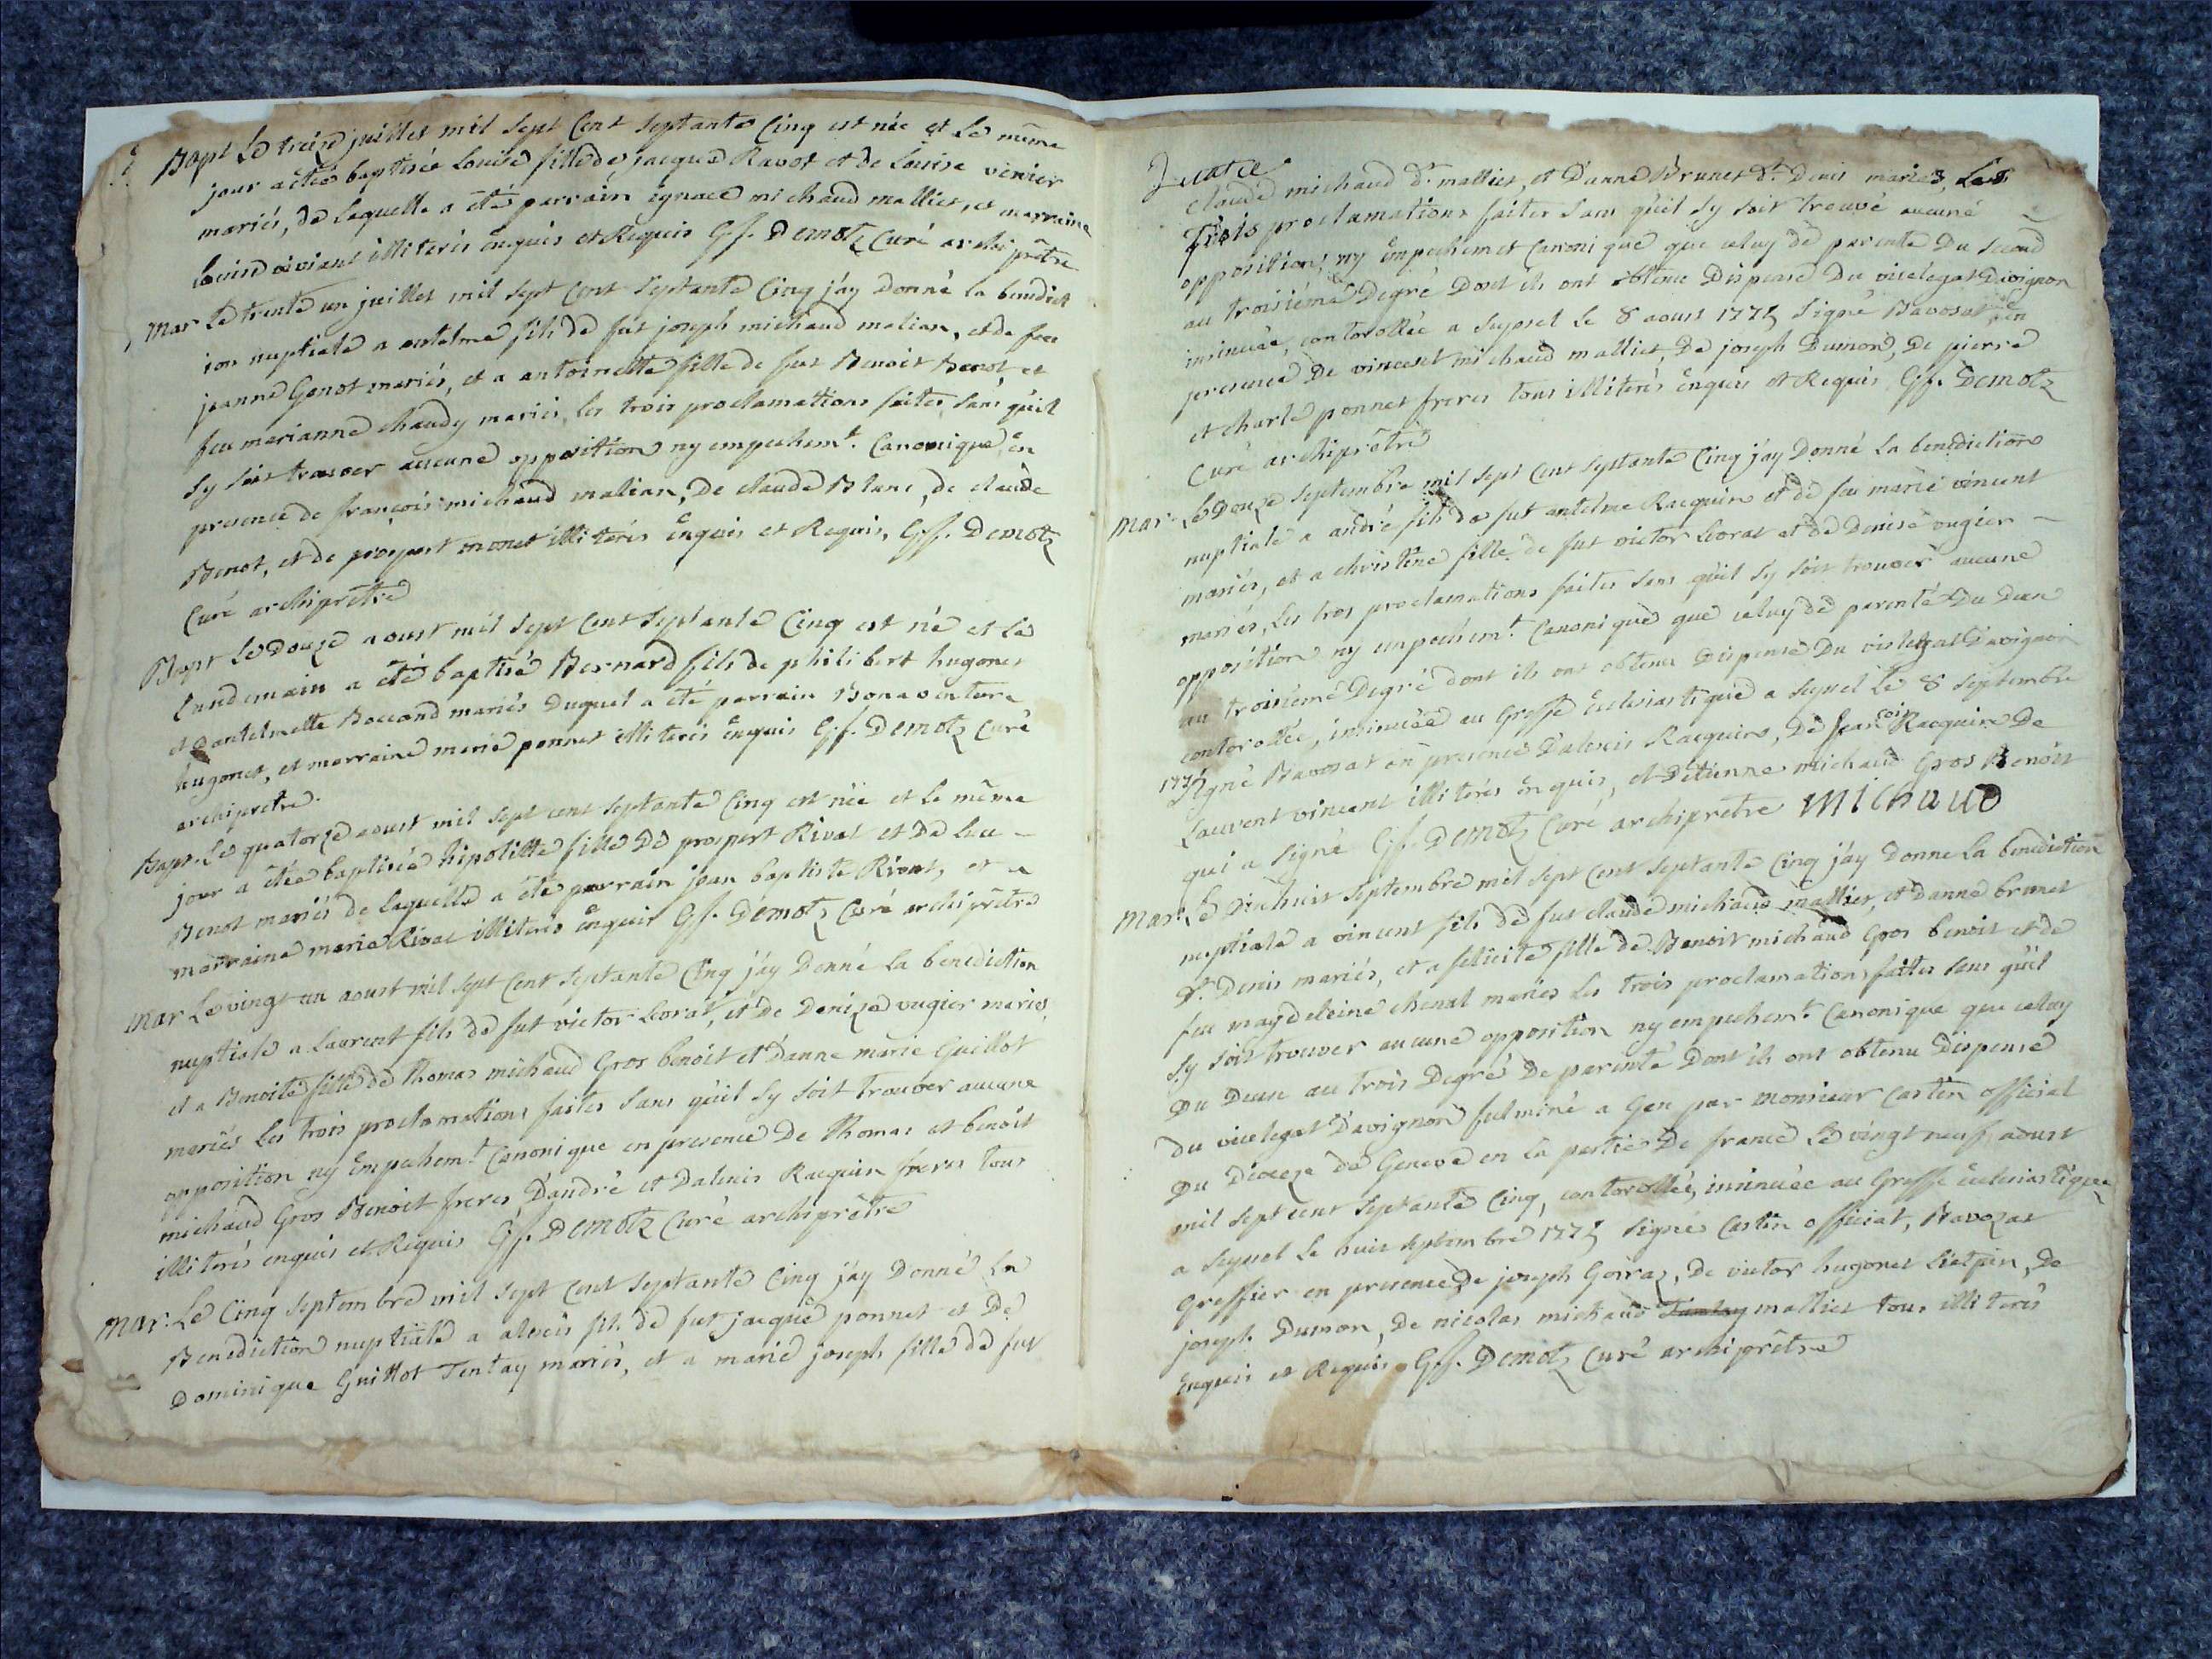 Bapt Le treize juillet mil sept cent septante cinq est née et le même
jour a étée baptisée Louise fille de jacque Ravot et de Louise vinier
mariés, de laquelle a été parrain ignace michaud malliet, et marraine
Louise vivient illiterés enquis et Requis Gf. Demotz Curé archiprêtre
Mar Le trente un juillet mil sept cent septante cinq j'ay donné la benedict
ion nuptiale a antelme fils de fut joseph michaud malian, et de feu
jeanne Genot mariés, et a antoinette fille de fut Benoit Benot et
feu marianne chaudy mariés, les trois proclamations faites sans qu'il
sy soit trouver aucune opposition ny empechemt. Canonique, en
presence de françois michaud malian, De claude Blanc, de claude
Benot, et de prospert monet illiterés enquis et Requis, Gf. Demotz
Curé archiprêtre
Bapt Le Douze aoust mil sept cent septante cinq est né et le
lundemain a été baptisé Bernard fils de philibert hugonet
et Dantelmette Boccand mariés Duquel a été parrain Bonaventure
hugonet, et marraine marie ponnet illiterés enquis Gf. Demotz Curé
archipretre.
Bapt. Le quatorze aoust mil sept cent septante cinq est née et le même
jour a étée baptisée hipolitte fille De prospert Rivat et De
Benot mariés de laquelle a été parrain jean baptiste Rivat, et
marraine marie Rivat illiterés enquis Gf. Demotz Curé archiprêtre
Mar Le vingt un aoust mil sept cent septante cinq j'ay Donné la benediction
nuptiale a Laurent fils de fut victor Corat, et De Denize vugier mariés,
et a Benoite fille de thomas michaud Gros benoit et D'anne marie Guillot
mariés Les trois proclamations faites sans qu'il sy soit trouver aucune
opposition ny Empechemt. Canonique en presence De thomas et benoit
michaud Gros Benoit freres, D'andré et Dalexis Racquin freres tous
illiterés enquis et Requis Gf. Demotz Curé archiprêtre
Mar. Le Cinq septembre mil sept cent septante cinq j'ay Donné la
Benediction nuptiale a alexis fils de fut jacque ponnet et De
Dominique Guillot Tentay mariés, et a marie joseph fille de fut
claude michaud dt. malliet, et D'anne Brunet dt. Denis mariés, Les
Trois proclamations faites sans qu'il sy soit trouvé aucune
opposition, ny Empechemet Canonique que celuy de parenté Du second
au troisiéme Degré Dont ils ont obtenu Dispense Du vicelegat Davignon
insinuée, controllée a Seyssel le 8 aoust 1775 Signé Bavosat, en
presence De vincent michaud malliet, De joseph Dumon, De pierre
et charle ponnet freres tous illiterés enquis et Requis, Gf. Demotz
Curé archiprêtre
Mar. Le Douze septembre mil sept cent septante cinq j'ay Donné la benediction
nuptiale a andré fils de fut antelme Racquin et de feu marie vincent
mariés, et a christine fille de fut victor Corat et de Denise vugier
mariés, Les trois proclamations faites sans qu'il sy soit trouver aucune
opposition ny empechemt. Canonique que celuy de parenté Du Deux
au troisiéme Degré dont ils ont obtenu Dispense Du vicelegat Davignon
controllée, insinuée au Greffe Ecclesiastique a Seyssel le 8 septembre
1775 signé Bavosat en presence Dalexis Racquin, De francois Racquin De
Laurent vincent illiterés enquis, et Détienne michaud Gros Benoit
qui a signé Gf. Demotz Curé archiprêtre Michaud
Mar. Le Dixhuit septembre mil sept cent septante cinq j'ay Donne la benediction
nuptiale a vincent fils de fut claude michaud malliet, et Danne brunet
dt. Denis mariés, et a felicité fille de Benoit michaud Gros benoit et de
feu magdeleine chenal mariés Les trois proclamations faites sans qu'il
sy soit trouver aucune opposition ny empechemt. Canonique que celuy
Du Deux au trois Degré De parenté Dont ils ont obtenu Dispense
du vicelegat D'avignon fulminé a Gex par Monsieur Castin official
Du Dioceze de Geneve en la partie De france Le vingt neuf aoust
mil sept cent septante cinq, controllée, insinuée au Greffe Ecclesiastique
a Seyssel le huit septembre 1775 signé Castin official, Bavozat
Greffier en presence De joseph Gorraz, De victor hugonet Lietpin, De
joseph Dumon, De nicolas michaud Tentay malliet tous illiterés
Enquis et Requis Gf. Demotz Curé archiprêtre